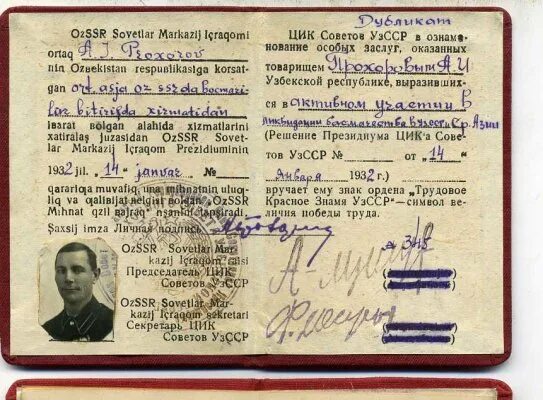 OzSSR Sovetlar Markazij Içraqomi
ortaq A I Proxorov
nin Ozbekistan respublikasiga korsat-
gan ort. asja oz ssr da bosmaci-
lik bitirişda xizmatidan
ibarat bolgan alahida xizmatlarini
xatiralaş juzasidan OzSSR Sovet-
lar Markazij Içraqom Prezidiuminin
1932 jil, "14" janvar №
qarariga muvafiq, una mihnatin uluq-
liq va qalibijat belgisi bolgan "OzSSR
Mihnat qzil bajraq" nşani tapşiradi.
Şaxsij imza Личная подпись
OzSSR Sovetlar Mar-
kazij Içraqom raisi
Председатель ЦИК
Советов УзССР
OzSSR Sovetlar Mar-
kazij Içraqom sekretari
Секретарь ЦИК
Советов УзССР
Дубликат
ЦИК Советов УзССР в ознаме-
нование особых заслуг, оказанных
товарищем Прохоровым А.И
Узбекской республике, выразивших-
ся в активном участии в
ликвидации басмачества в Ср. Азии
(Решение Президиума ЦИК'а Сове-
тов УзССР № от "14"
января 1932 г.)
вручает ему знак ордена „Трудовое
Красное Знамя УзССР"—символ ве-
личия победы труда.